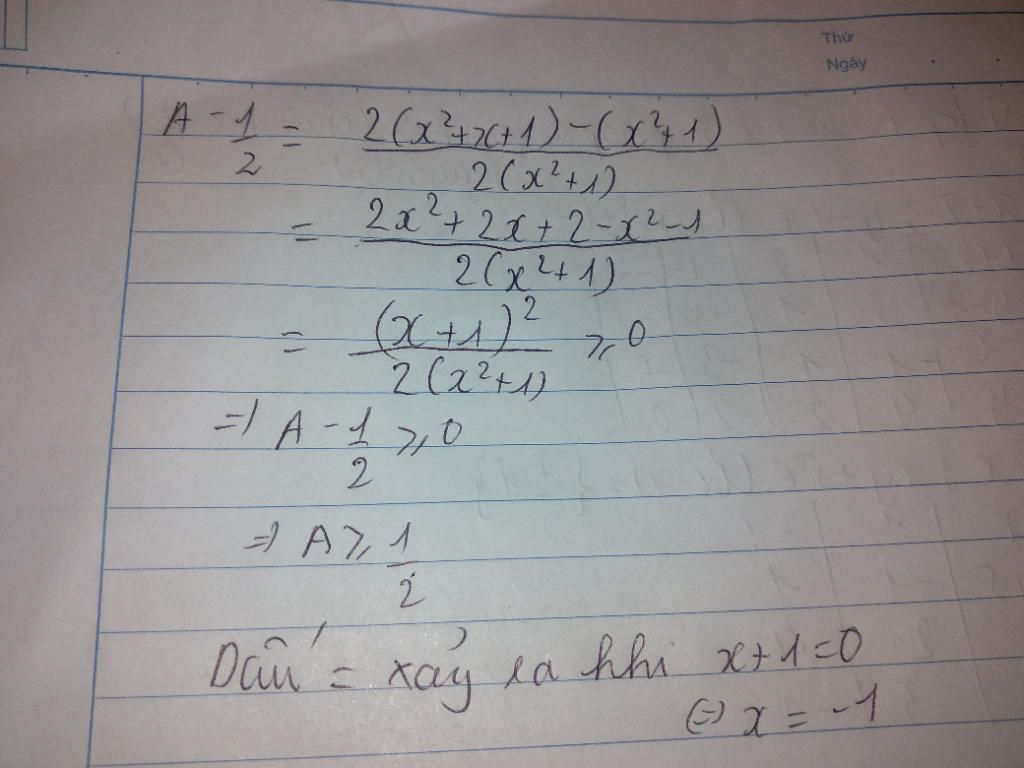 Thứ
Ngày
A - 1/2 = (2(x²+x+1)-(x²+1))/(2(x²+1))
= (2x²+2x+2-x²-1)/(2(x²+1))
= (x+1)²/(2(x²+1)) ≥ 0
=> A - 1/2 ≥ 0
=> A ≥ 1/2
Dấu = xảy ra khi x+1=0
<=> x = -1